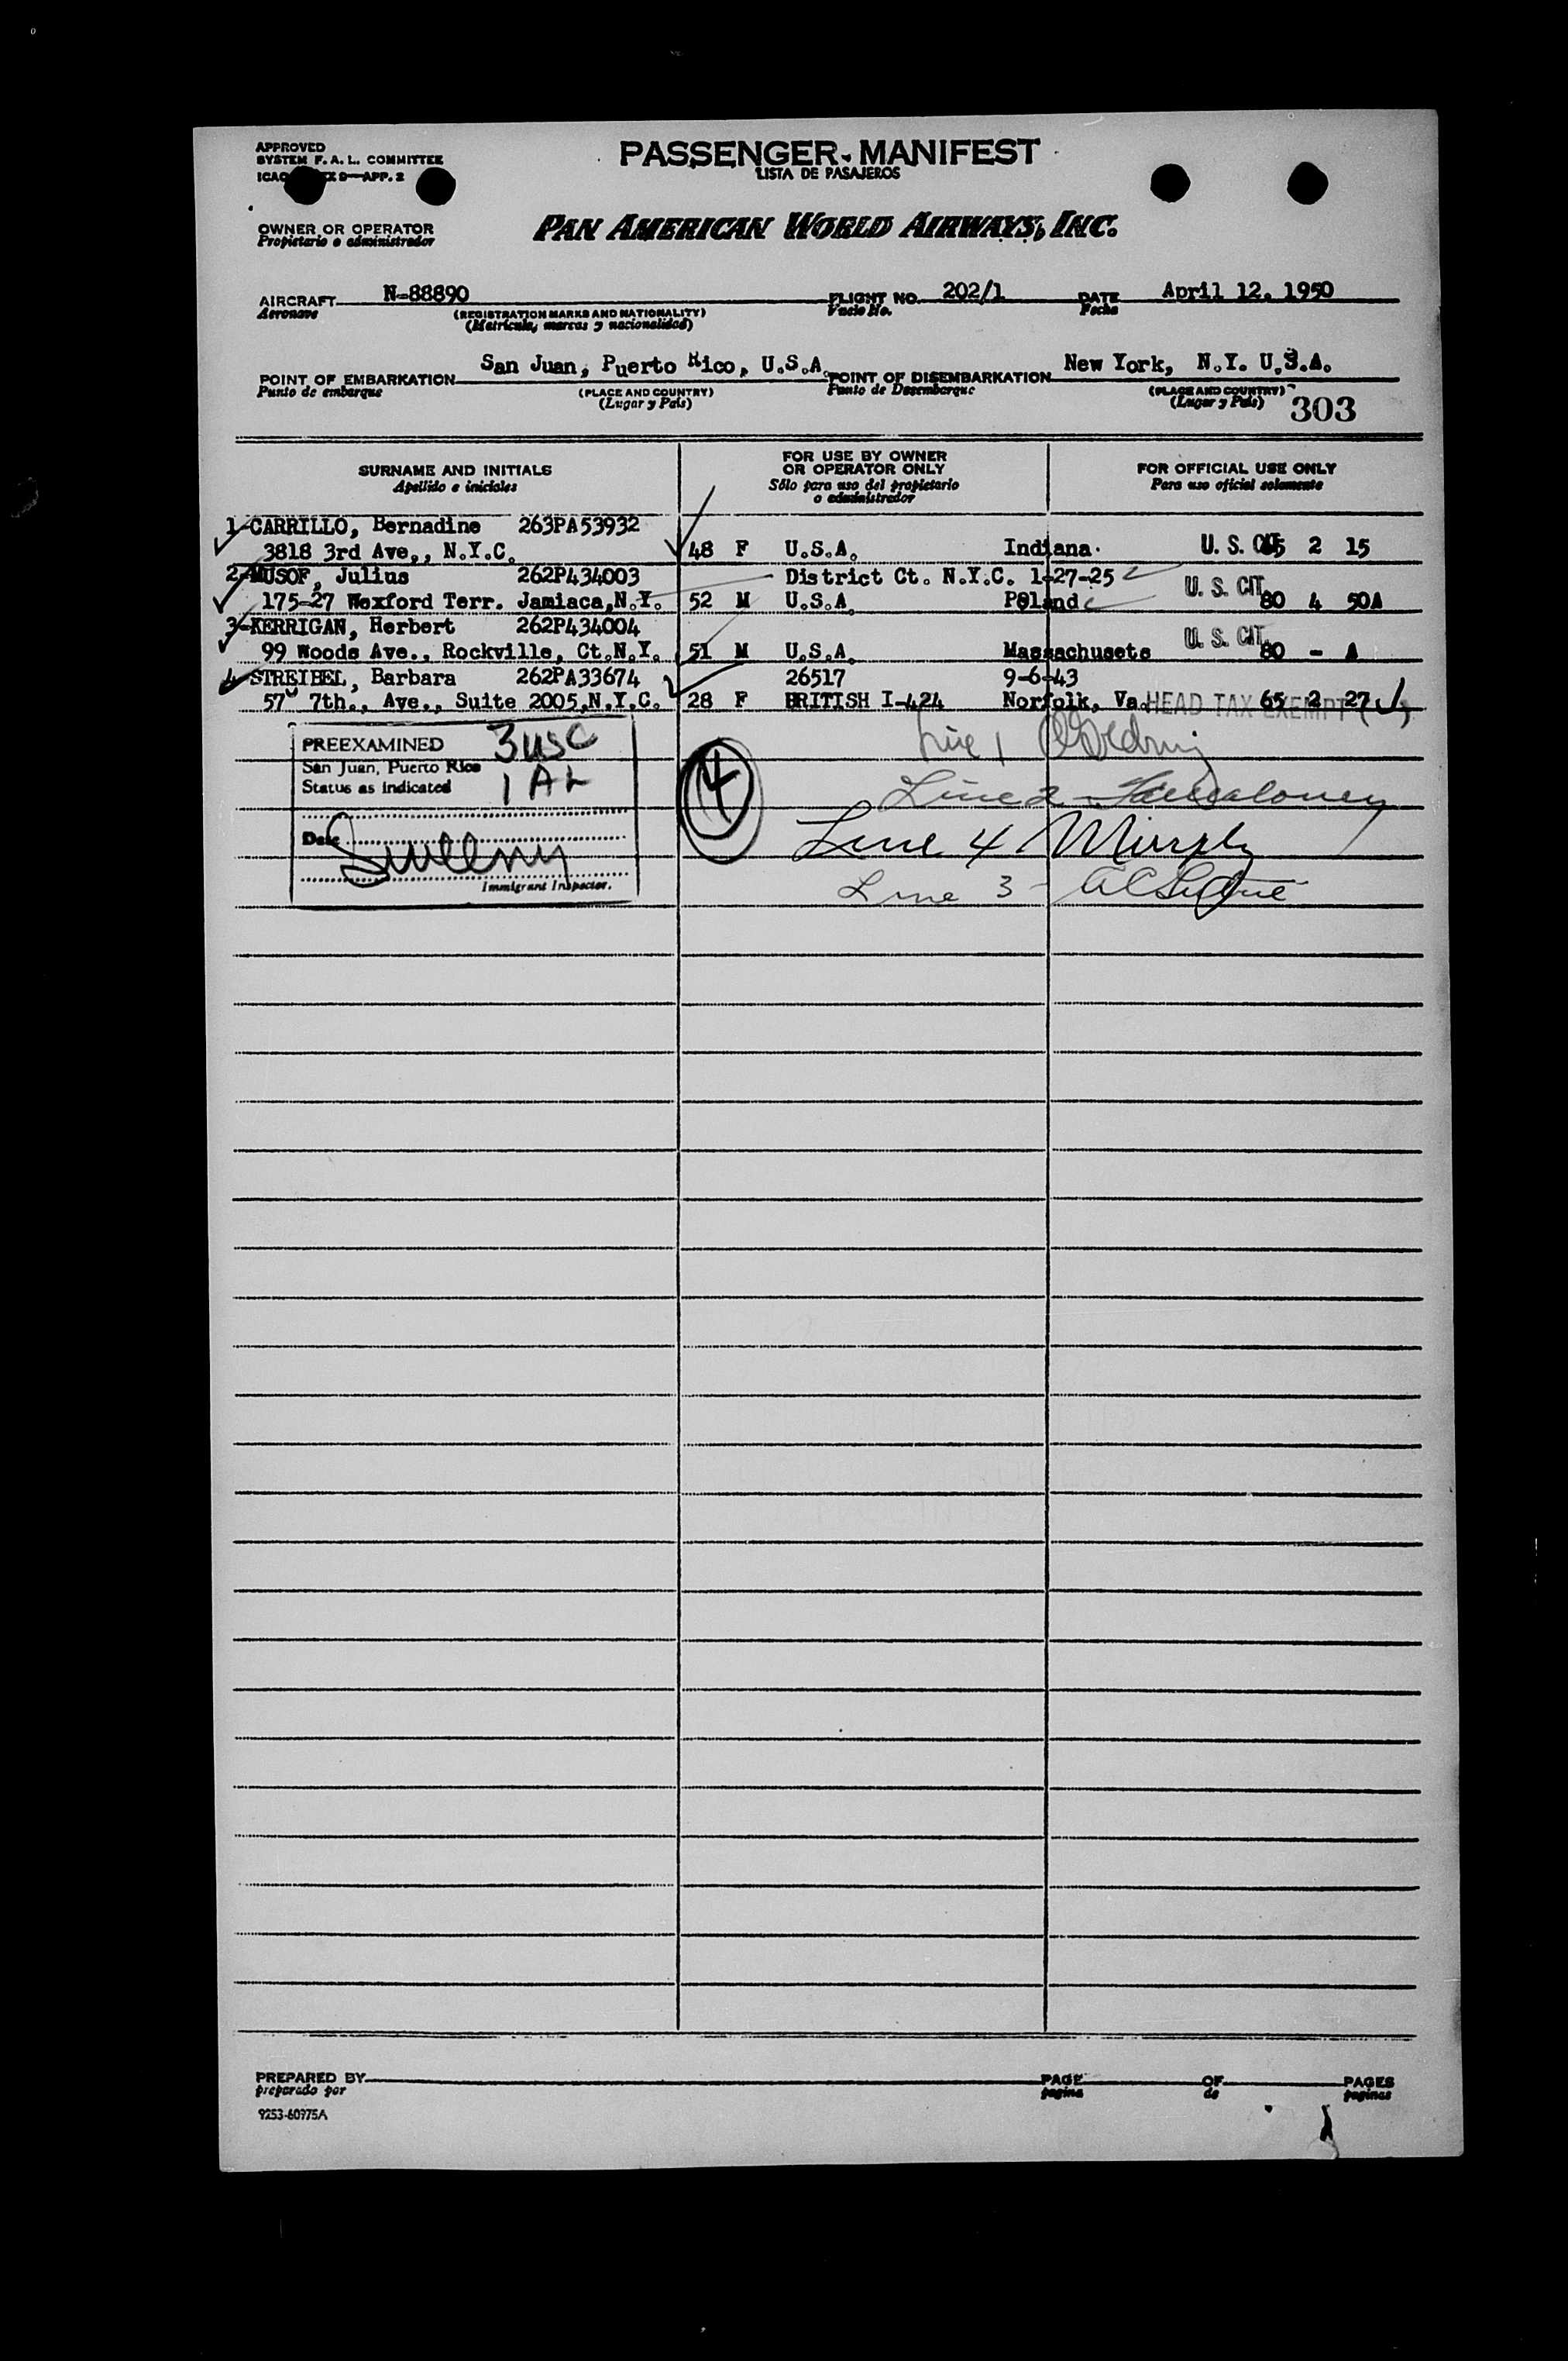 APPROVED
SYSTEM F. A. L. COMMITTEE
ICAO X 9—APP. 2
PASSENGER MANIFEST
LISTA DE PASAJEROS
OWNER OR OPERATOR
Propietario o administrador
PAN AMERICAN WORLD AIRWAYS, INC.
AIRCRAFT N-88890 FLIGHT NO. 202/1 DATE April 12. 1950
Aeronave (REGISTRATION MARKS AND NATIONALITY) Vuelo No. Fecha
(Matrícula, marcas y nacionalidad)
POINT OF EMBARKATION San Juan, Puerto Rico, U.S.A. POINT OF DISEMBARKATION New York, N.Y. U.S.A.
Punto de embarque (PLACE AND COUNTRY) Punto de Desembarque (PLACE AND COUNTRY)
(Lugar y País) (Lugar y País) 303
SURNAME AND INITIALS
Apellido e iniciales
FOR USE BY OWNER
OR OPERATOR ONLY
Sólo para uso del propietario
o administrador
FOR OFFICIAL USE ONLY
Para uso oficial solamente
1-CARRILLO, Bernadine 263PA53932
3818 3rd Ave,, N.Y.C. 48 F U.S.A. Indiana U. S. CIT. 65 2 15
2-MUSOF, Julius 262P434003 District Ct. N.Y.C. 1-27-25
175-27 Wexford Terr. Jamiaca,N.Y. 52 M U.S.A. Poland U. S. CIT. 80 4 50A
3-KERRIGAN, Herbert 262P434004
99 Woods Ave., Rockville, Ct.N.Y. 51 M U.S.A. Massachusets U. S. CIT. 80 - A
4-STREIBEL, Barbara 262PA33674 26517 9-6-43
57 7th., Ave., Suite 2005,N.Y.C. 28 F BRITISH I-424 Norfolk, Va. HEAD TAX EXEMPT ( ) 65 2 27
PREEXAMINED 3 USC
San Juan, Puerto Rico
Status as indicated 1 AL
Date
Sweeny
Immigrant Inspector.
4
Line 1
Line 2
Line 4 Murphy
Line 3 -
PREPARED BY PAGE OF PAGES
preparado por pagina de paginas
9253-60975A